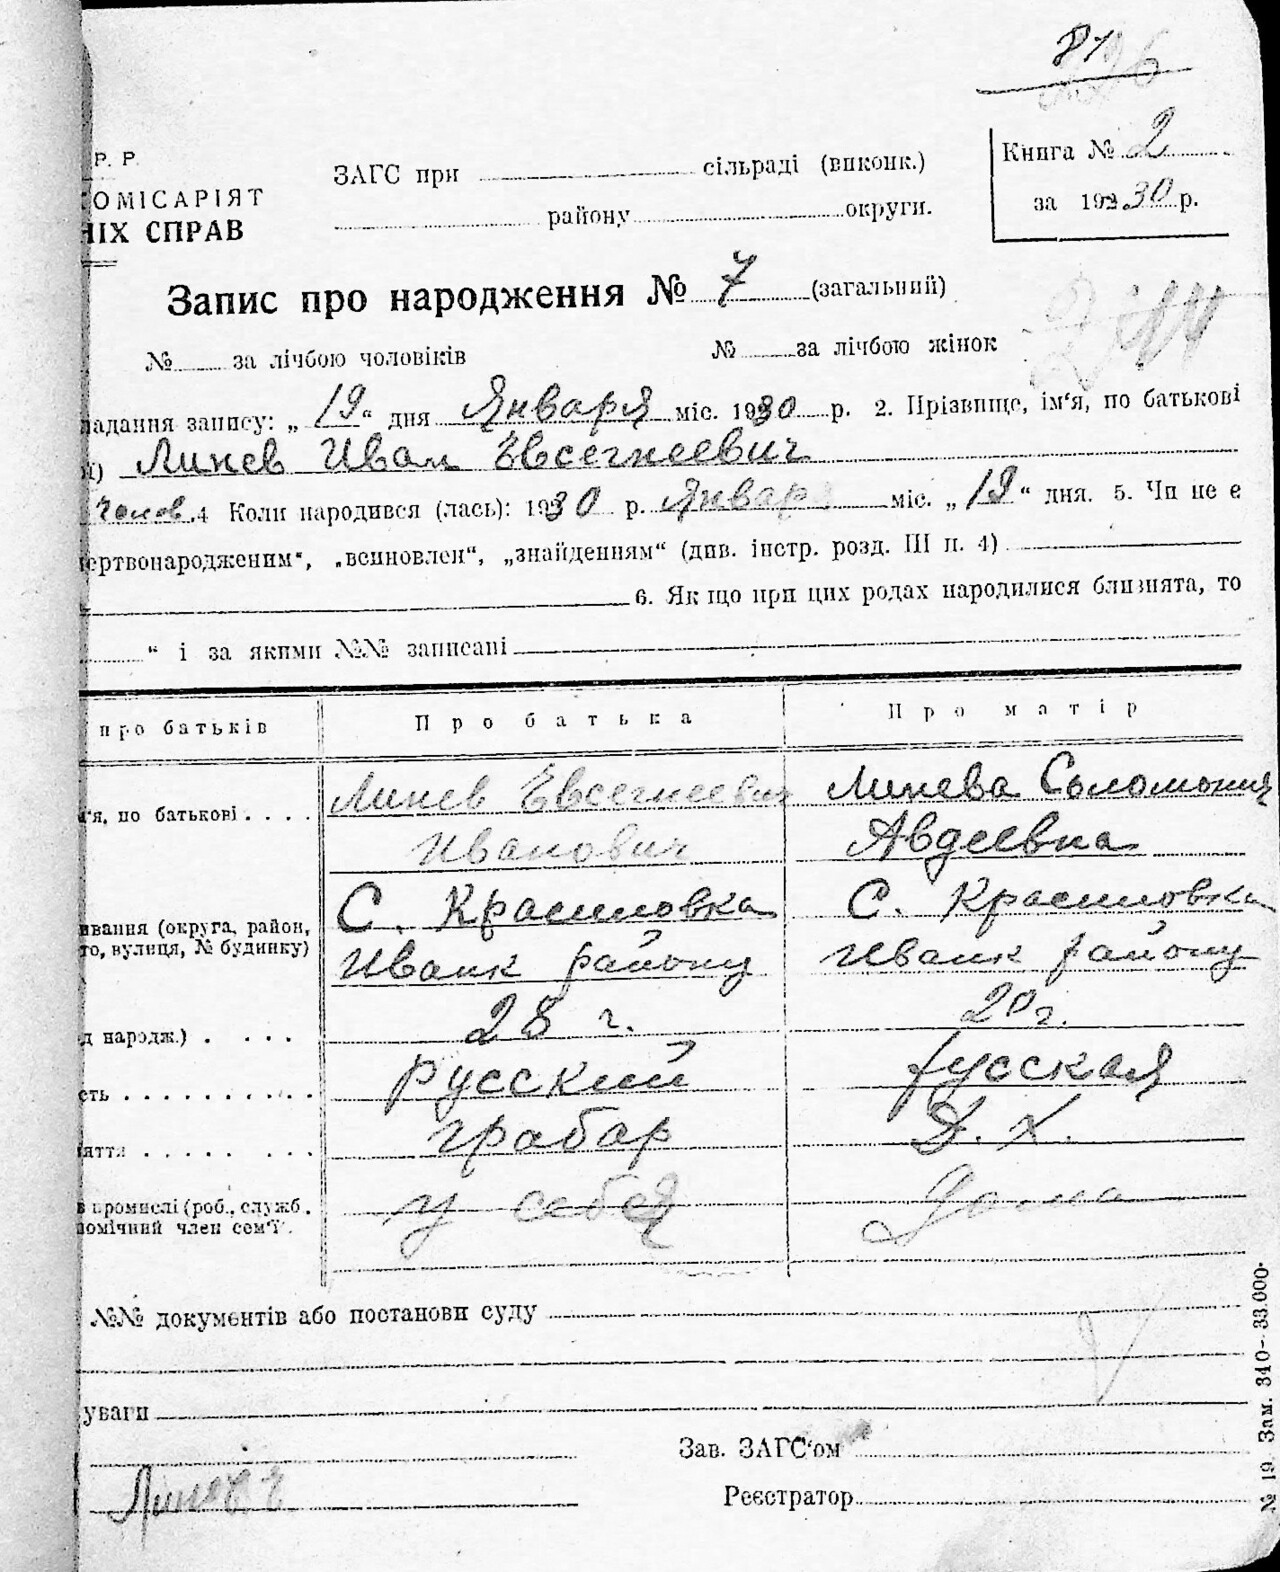 81
Р. Р.
ОМІСАРІЯТ
НІХ СПРАВ
ЗАГС при сільраді (виконк.)
району округи.
Книга № 2
за 192 30 р.
Запис про народження № 7 (загальний)
№ за лічбою чоловіків № за лічбою жінок
ладання запису: „ 19 “ дня Января міс. 1930 р. 2. Прізвище, ім‘я, по батькові
) Линев Иван Евсегнеевич
Челов. 4 Коли народився (лась): 1930 р. Января міс. „ 19 “ дня. 5. Чи не є
ертвонародженим“, „всиновлен“, „знайденням“ (див. інстр. розд. III п. 4)
6. Якщо при цих родах народилися близнята, то
“ і за якими №№ записані
про батьків Про батька Про матір
‘я, по батькові . . . . Линев Евсегнеевич Линева Соломония
Иванович Авдеевна
ивання (округа, район, С. Красиловка С. Красиловка
то, вулиця, № будинку) Иванк району Иванк району
д народж.) . . . . 28 г. 20 г.
сть . . . . . . . . . . Русский русская
яття . . . . . . . . грабар Д. Х.
в промислі (роб., служб. у себя Дома
омічний член сем‘ї.
№№ документів або постанови суду
уваги
Зав. ЗАГС‘ом
Линев Е
Реєстратор
№ 19. Зам. 340–33.000.